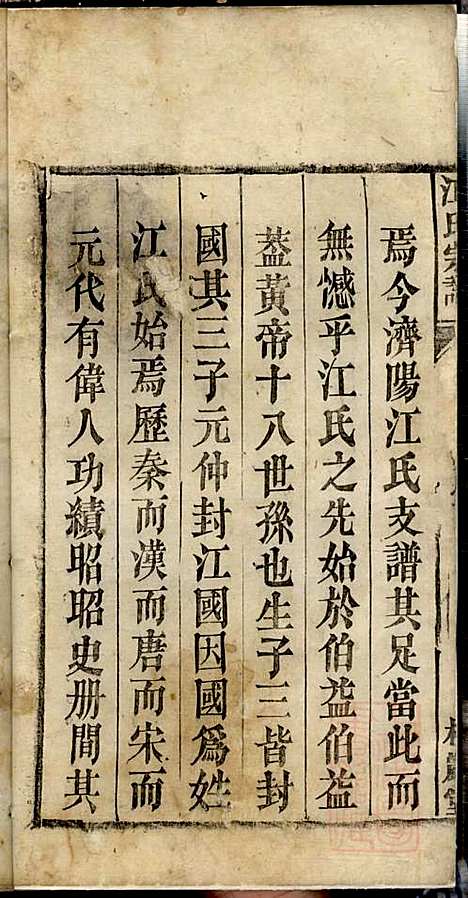 江氏宗譜
焉今濟陽江氏支譜其足當此而
無憾乎江氏之先始於伯益伯益
蓋黃帝十八世孫也生子三皆封
國其三子元仲封江國因國爲姓
江氏始焉歷秦而漢而唐而宋而
元代有偉人功績昭昭史册間其